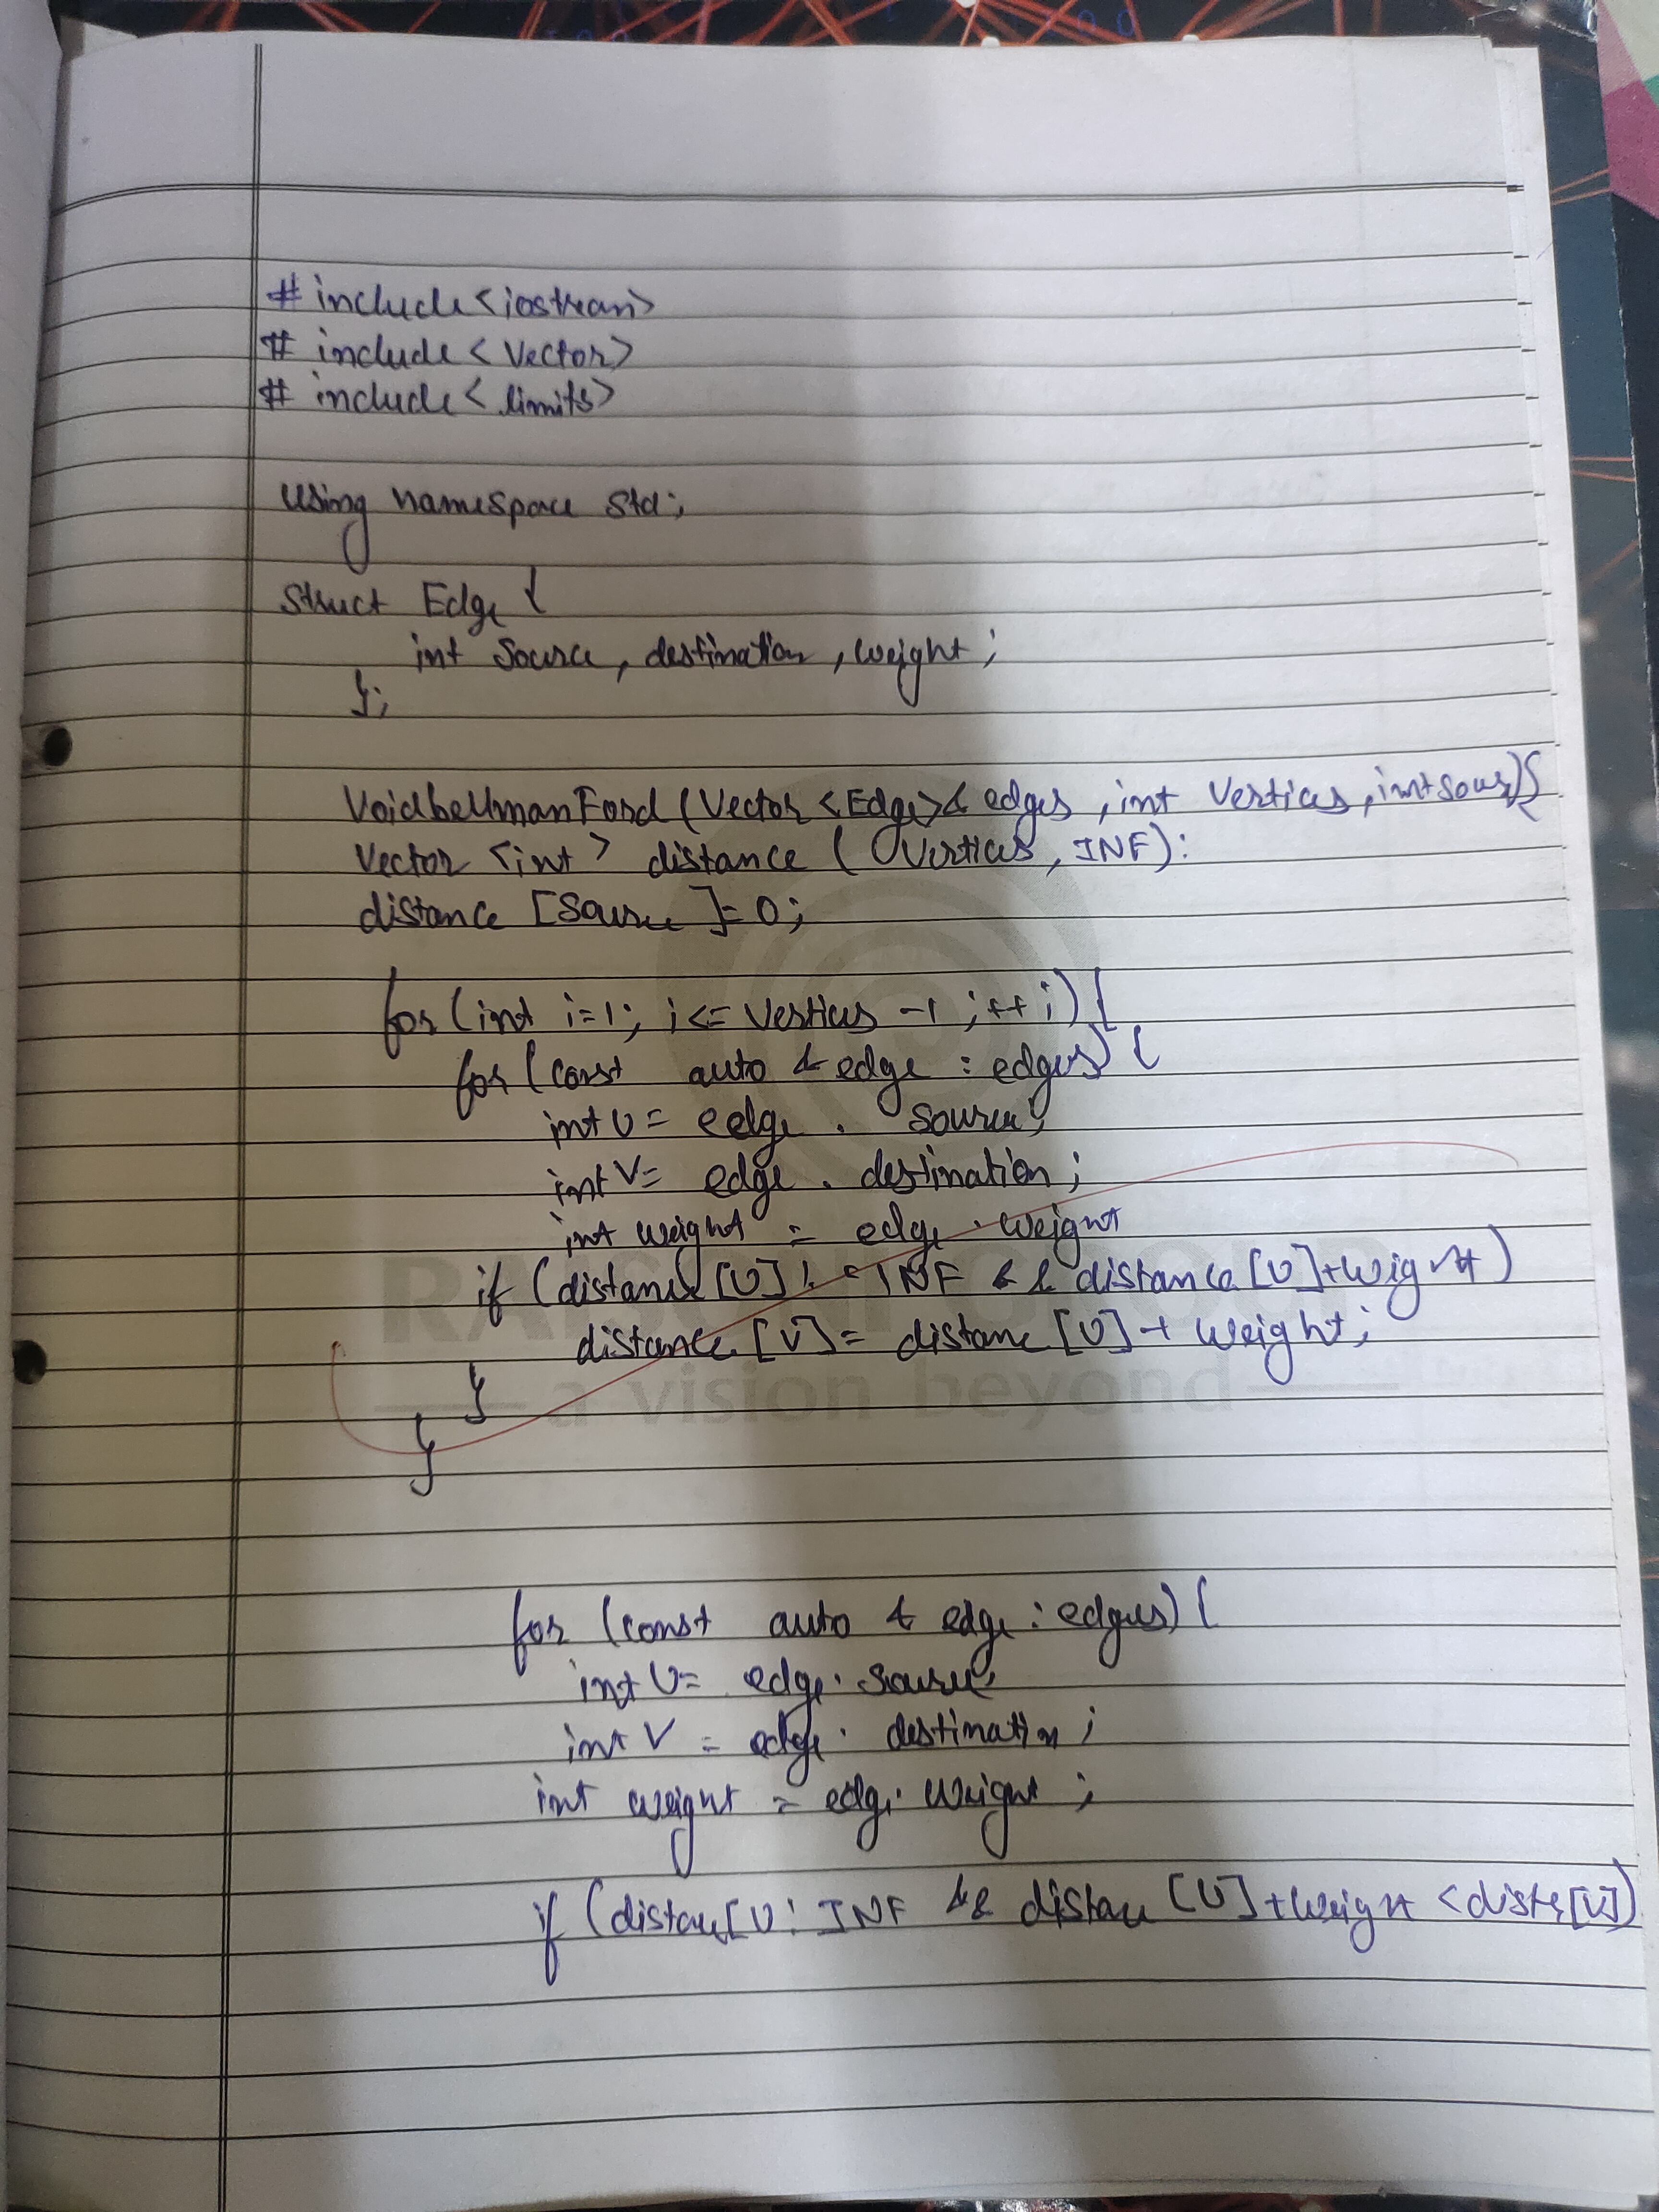 # include <iostream>
# include < Vector>
# include < limits>
using namespace std;
Struct Edge {
int Source, destination, weight;
};
VoidbellmanFord (Vector <Edge>& edges, int Vertices, int
Vector <int> distance (Vertices, INF):
distance [Source] = 0;
for (int i=1; i<= Vertices -1 ; ++ i) {
for (const auto & edge : edges) {
int U = edge . source;
int V= edge . destination;
int weight = edge . weight
if (distance [U] != INF && distance [U]+weight)
distance [V] = distance [U] + weight;
}
}
RAISONI GROUP
a vision beyond
for (const auto & edge : edges) {
int U= edge. Source;
int V = edge. destination;
int weight = edge. weight ;
if (distan[U! INF && distan [U]+weight < [V])